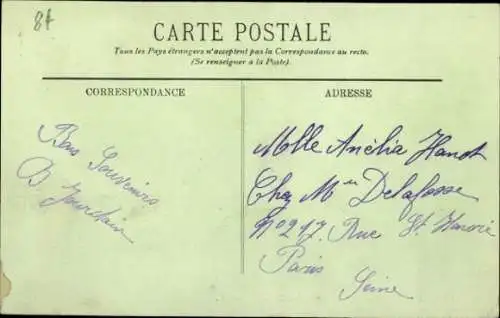 84
CARTE POSTALE
Tous les Pays étrangers n'acceptent pas la Correspondance au recto.
(Se renseigner à la Poste).
CORRESPONDANCE
ADRESSE
Bons Souvenirs
B Jourdain
Melle Amélia Hanot
Chez Mme Delafosse
No 217. Rue St. Honoré
Paris
Seine